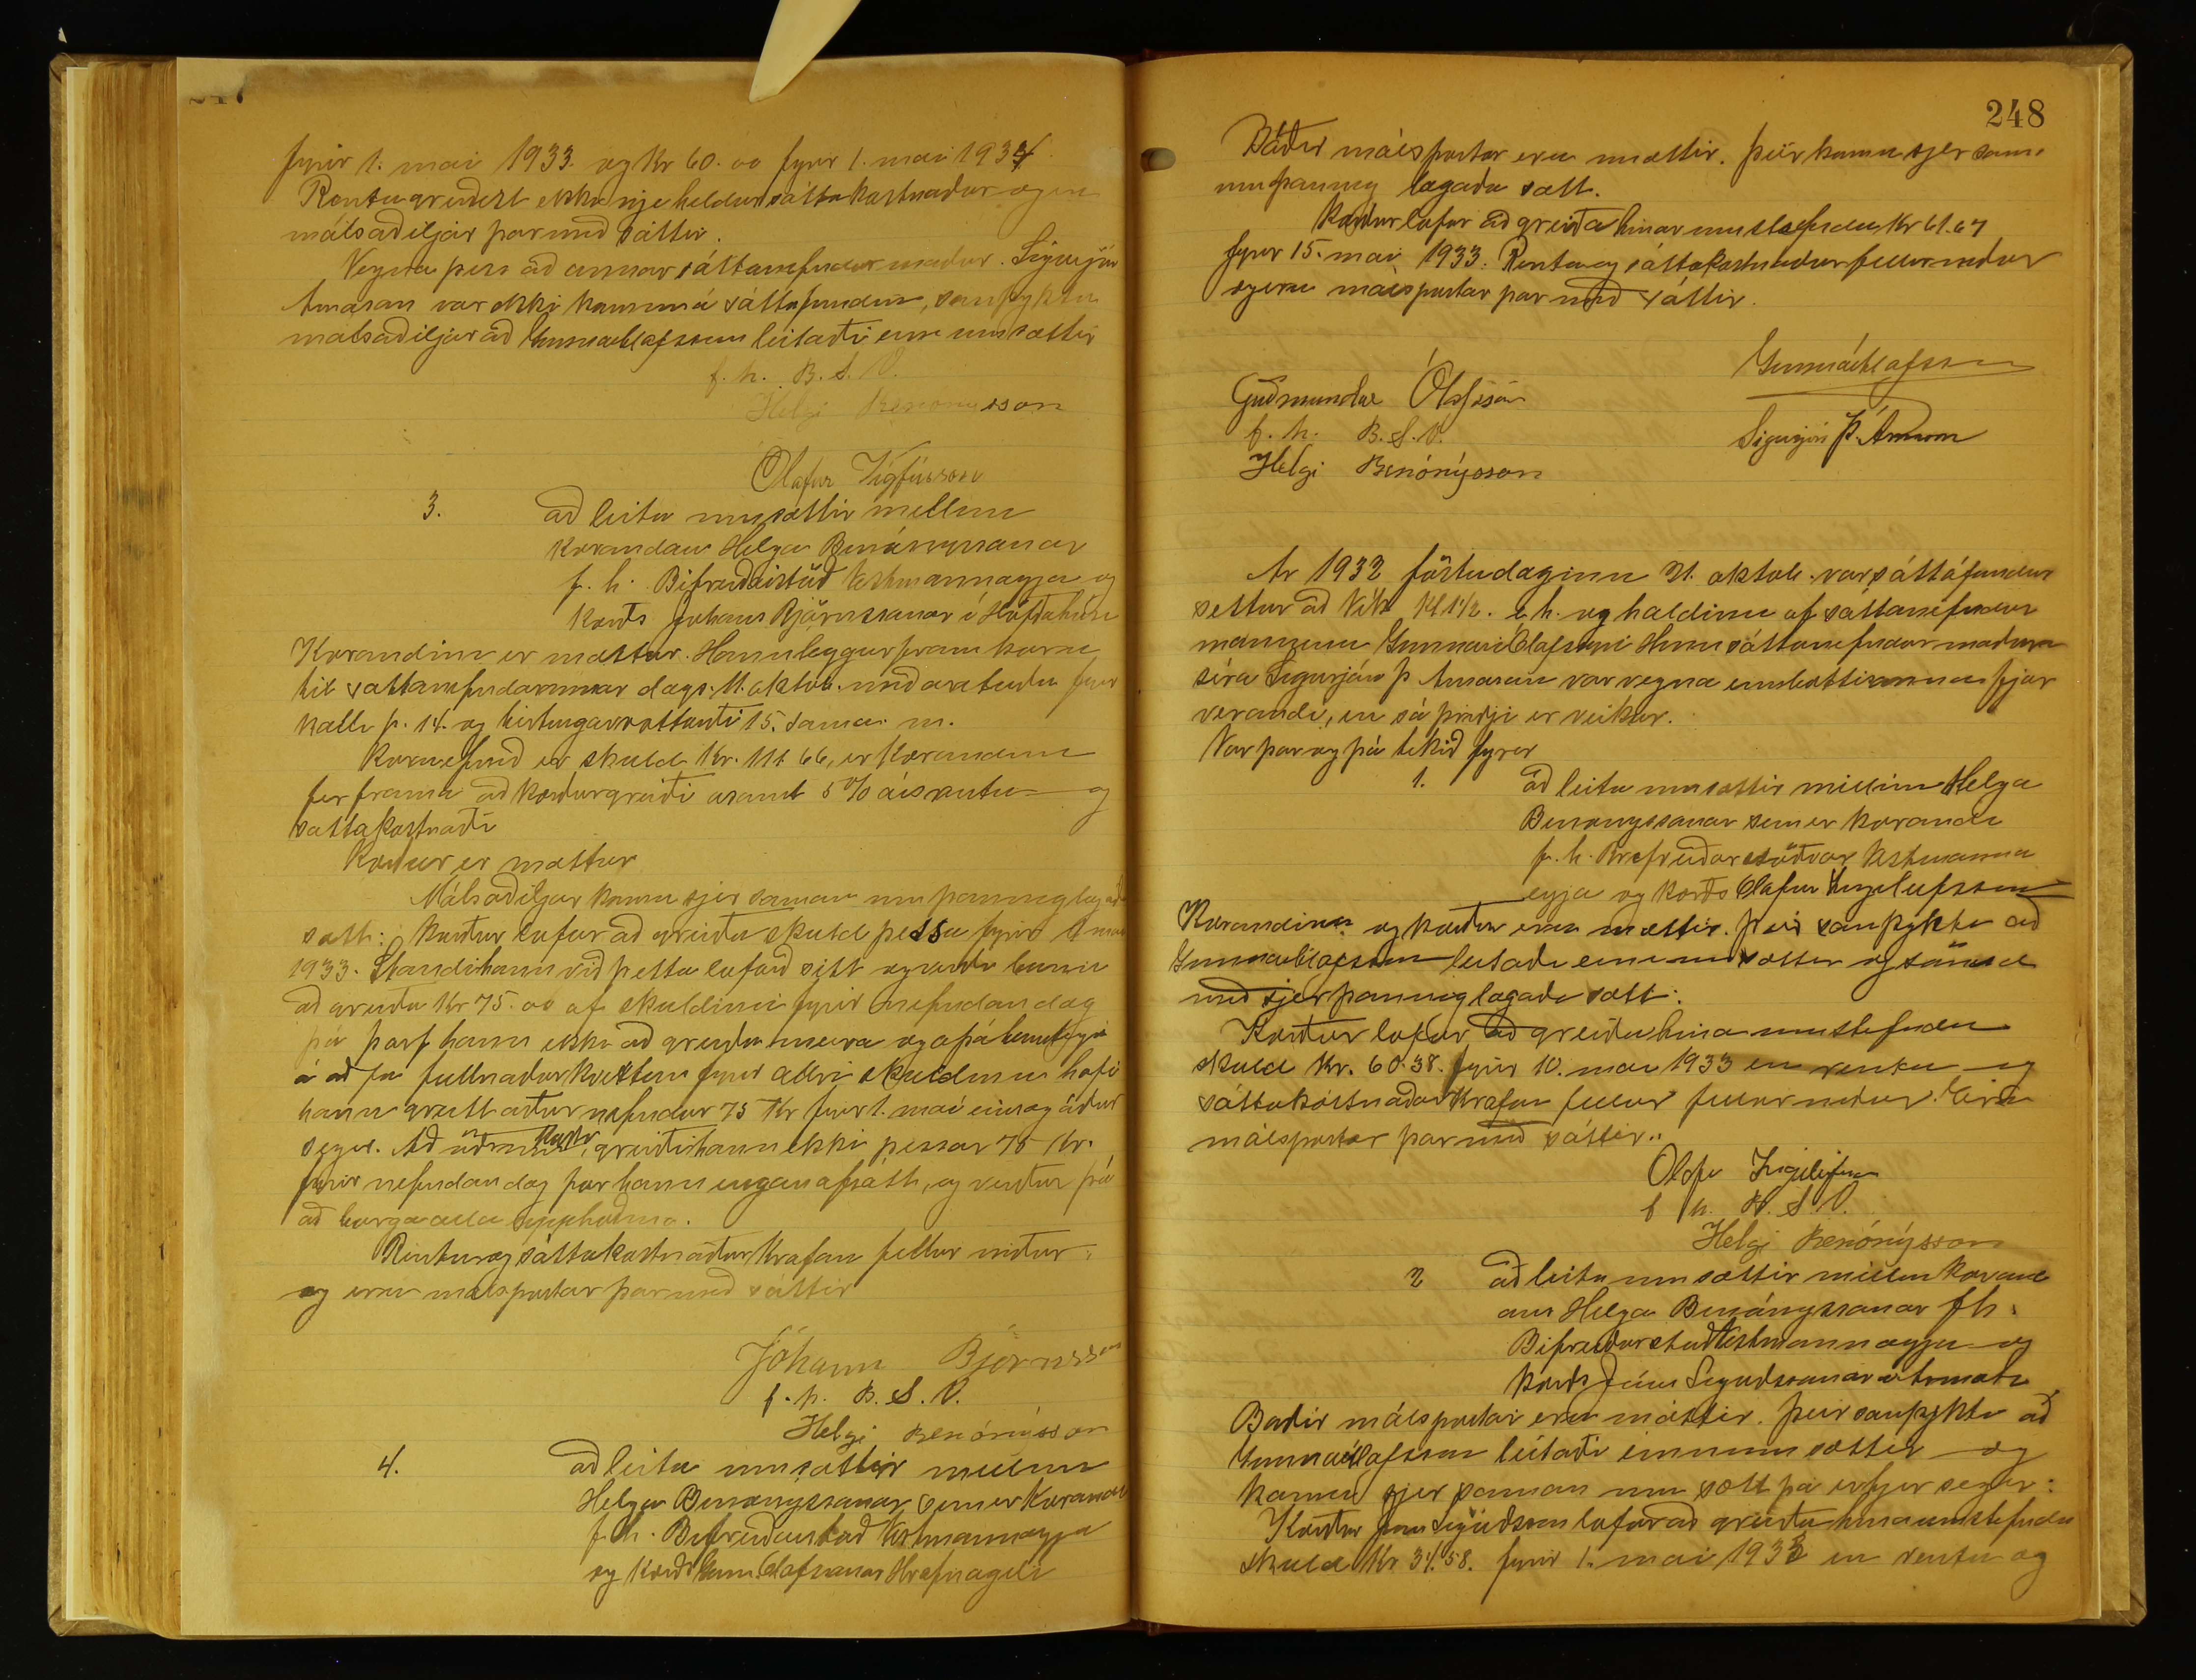 247
fyrir 1. mai 1933. og kr 60.00 fyrir 1. mai 1934
Renta greiðist ekki nje heldur sáttakostnaður og eru
málsaðiljar þar með sáttir.
Vegna þess að annar sáttanefndar maður. Sigurjón
Árnason var ekki kominn á sáttafundinn, samþyktu
málsaðiljar að Gunnar Ólafsson leitaði einn um sættir
f. h. B. S. V.
Helgi Benónýsson
Ólafur Vigfússon
3. að leita um sættir millum
kærandans Helga Benónýssonar
f. h. Bifreiðastöð Vestmannaeyja og
kærðs Jóhans Björnssonar í Höfðahúsi
Kærandinn er mættur. Hann leggur fram kæru
til sáttanefndarinnar dags. 11. oktob. með áteiknuðu fyrir
kalli p. 14. og birtingarvottorði 15. sama m.
Kæruefnið er skuld Kr. 111.66, er kærandinn
fer fram á að kærður greiði ásamt 5% ársrentu og
sáttakostnaði
Kærður er mættur
Málsaðiljar komu sjer saman um þannig lagaða
sátt: Kærður lofar að greiða skuld þessa fyrir 1 mai
1933. Standi hann við þetta loforð sitt og verði búinn
að greiða Kr 75.00 af skuldinni fyrir nefndan dag
þá þarf hann ekki að greiða meira og á þá heimtingu
á að fá fullnaðarkvittun fyrir allri skuldinni hafi
hann greitt áður nefndar 75 Kr fyrir 1. mai eins og áður
segir. Að öðrum kosti, greiði hann ekki þessar 75 Kr.
fyrir nefndan dag fær hann engan afslátt, og verður þá
að borga alla upphæðina.
Rentu og sáttakostnaðar krafan fellur niður.
og eru málspartar þar með sáttir
Jóhann Björnsson
f. h. B. S. V.
Helgi Benónýsson
4. að leita um sættir millum
Helga Benónýssonar sem er kærandi
f. h. Bifreiðastöð Vestmannaeyja
og kærðs Guðm. Ólafssonar Hrafnagili
248
Báðir málspartar eru mættir. Þeir komu sjer sam-
an um þannig lagaða sætt.
Kærður lofar að greiða hinar umstefndu Kr 61.67
fyrir 15. mai 1933. Renta og sáttakostnaður fellur niður
og eru málspartar þar með sáttir.
Gunnar Ólafsson
Guðmundur Ólafsson
f. h. B. S. V.
Sigurjón Þ. Árnason
Helgi Benónýsson
Ár 1932 föstudaginn 21. oktob. var sáttafundur
settur að Vík Kl 1 1/2. e.h. og haldinn af sáttanefndar
manninum Gunnari Ólafssyni Hinn sáttanefndar maðurinn
síra Sigurjón Þ Árnason var vegna embættisanna fjær
verandi, en sá þriðji er veikur.
Var þar og þá tekið fyrir
1. að leita um sættir millum Helga
Benónýssonar sem er kærandi
f. h. Bifreiðarstöðvar Vestmanna
eyja og kærðs Ólafur Ingileifsson
Kærandinn og kærður eru mættir. Þeir samþyktu að
Gunnar Ólafsson leitaði einn um sættir og sömdu
með sjer þannig lagaða sætt:
Kærður lofar að greiða hina umstefndu
skuld Kr. 60.38. fyrir 10. mai 1933 en rentu og
sáttakostnaðar krafan fellur fellur niður. Eru
málspartar þar með sáttir.
Ólafur Ingileifsson
f h. B. S. V.
Helgi Benónýsson
2 að leita um sættir millum kærand
ans Helga Benónýssonar f h.
Bifreiðarstöð Vestmannaeyja og
kærðs Jóns Sigurðssonar
Báðir málspartar eru mættir. Þeir samþyktu að
Gunnar Ólafsson leitaði einn um sættir og
komu sjer saman um sætt þá er fer segir:
Kærður Jón Sigurðsson lofar að greiða hina umstefndu
skuld Kr 31.58. fyrir 1. mai 1933 en rentu og